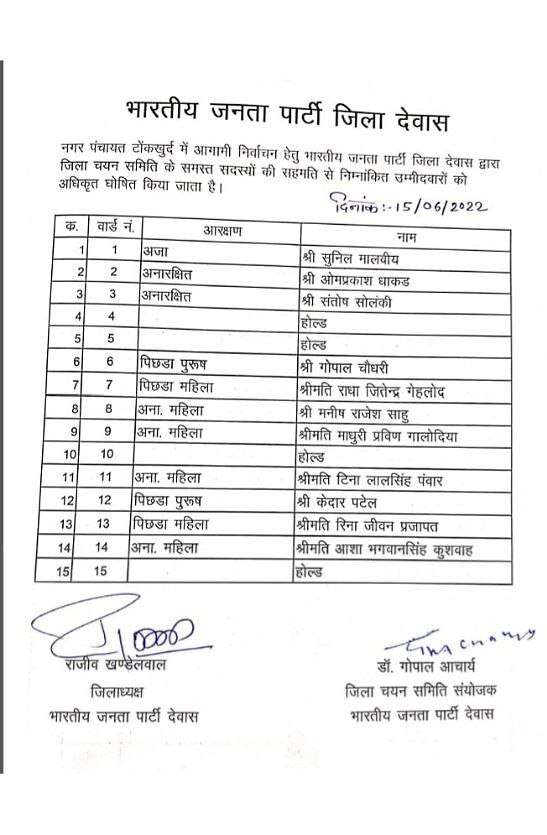 भारतीय जनता पार्टी जिला देवास
नगर पंचायत टोंकखुर्द में आगामी निर्वाचन हेतु भारतीय जनता पार्टी जिला देवास द्वारा
जिला चयन समिति के समस्त सदस्यों की सहमति से निम्नांकित उम्मीदवारों को
अधिकृत घोषित किया जाता है।
दिनांकः-15/06/2022
क. वार्ड नं. आरक्षण नाम
1 1 अजा श्री सुनिल मालवीय
2 2 अनारक्षित श्री ओमप्रकाश धाकड
3 3 अनारक्षित श्री संतोष सोलंकी
4 4 होल्ड
5 5 होल्ड
6 6 पिछडा पुरूष श्री गोपाल चौधरी
7 7 पिछडा महिला श्रीमति राधा जितेन्द्र गेहलोद
8 8 अना. महिला श्री मनीष राजेश साहु
9 9 अना. महिला श्रीमति माधुरी प्रविण गालोदिया
10 10 होल्ड
11 11 अना. महिला श्रीमति टिना लालसिंह पंवार
12 12 पिछडा पुरूष श्री केदार पटेल
13 13 पिछडा महिला श्रीमति रिना जीवन प्रजापत
14 14 अना. महिला श्रीमति आशा भगवानसिंह कुशवाह
15 15 होल्ड
राजीव खण्डेलवाल डॉ. गोपाल आचार्य
जिलाध्यक्ष जिला चयन समिति संयोजक
भारतीय जनता पार्टी देवास भारतीय जनता पार्टी देवास